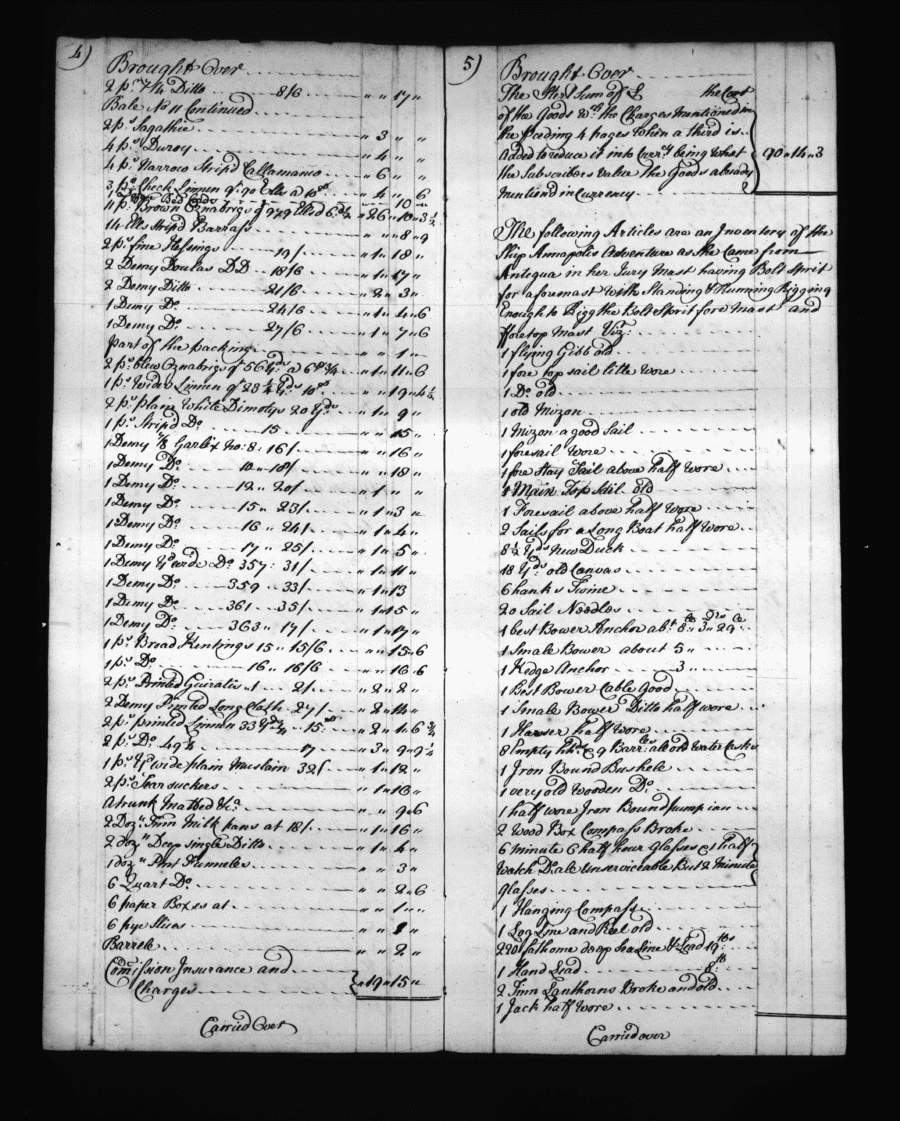 4)
Brought Over
2 ps 7/4 Ditto 8/6 " " 17 "
Bale No 11 Continued
2 ps Sagathie " 3 " "
4 ps Duroy " 4 " "
4 ps Narrow Strip'd Callamanco " 6 " "
3 ps Check Linnen qt 90 Ells a 10d " 4 " 6
Bed Cords 10
11 ps Brown Oznabrigs qt 979 Ells d " 26 " 10 " 3 1/2
14 Ells Strip'd Barras " " 8 " 9
2 ps fine Hessings 19/ " 1 " 18 "
2 Demy Doulas DD 18/6 " 1 " 17 "
2 Demy Ditto 21/6 " 2 " 3 "
1 Demy Do 24/6 " 1 " 4 " 6
1 Demy Do 27/6 " 1 " 7 " 6
Part of the packing " " 1 "
2 ps blew Oznabrigs qt 56 Yds a 6 3/4 " 1 " 11 " 6
1 ps Wider Linnen qt 28 1/4 Yds 10d " " 19 " 4 1/2
2 ps plain White Dimotys 20 Yds " 1 " 9 "
1 ps Strip'd Do 15 " " 15 "
1 Demy 7/8 Garlix No: 8: 16/ " " 16 "
1 Demy Do 10 " 18/ " " 18 "
1 Demy Do 12 " 20/ " 1 " "
1 Demy Do 15 " 23/ " 1 " 3 "
1 Demy Do 16 " 24/ " 1 " 4 "
1 Demy Do 17 " 25/ " 1 " 5 "
1 Demy Yd wide Do 357: 31/ " 1 " 11 "
1 Demy Do 359 33/ " 1 " 13
1 Demy Do 361 35/ " 1 " 15 "
1 Demy Do 363 " 17/ " 1 " 17 "
1 ps Broad Kentings 15 " 15/6 " " 15 " 6
1 ps Do 16 " 16/6 " " 16 " 6
2 ps Printed 21/ " 2 " 2 "
2 Demy Printed Long Cloth 27/ " 2 " 14 "
2 ps printed Linnen 33 Yds 15d " 2 " 1 " 6 3/4
2 ps Do 49 1/2 17 " 3 " 9 " 9 1/4
1 ps Yd wide plain Muslain 32/ " 1 " 12 "
2 ps Searsuckers " 1 " 13 "
A trunk Matted &ca " " 9 " 6
2 Dozn Tinn Milk pans at 18/ " 1 " 16 "
2 dozn Deep single Ditto " 1 " 4 "
1 dozn Pint Funneles " " 3 "
6 Quart Do " " 2 " 6
6 paper Boxes at " " 1 " "
6 pye Slices " " 1 "
Barrele " " 2 "
Comission Insurance and
Charges } " 19 " 15 "
Carried Over
5)
Brought Over
The Sterl Sum of £ the Cost
of the Goods Wth the Charges Mentioned in
the preceding 4 pages When a third is
Added to reduce it into Curry being What } 90 " 14 " 3
the Subscribers Value The Goods already
Mentiond in Currency
The following Articles are an Inventory of the
Ship Annapolis Adventure as She Came from
Antegua in her Jury Mast having Bolt Sprit
for a foremast With Standing & Running Rigging
Enough to Rigg the Bolt Sprit fore Mast and
Fore top Mast Viz:
1 flying Gibb old
1 fore top sail little wore
1 Do old
1 old Mizon
1 Mizon a good Sail
1 foresail wore
1 fore Stay Sail above half wore
1 Main Top Sail old
1 Foresail above half wore
2 Sails for a Long Boat half wore
8 1/2 Yds New Duck
18 Yds old Canvas
6 hanks Twine
20 Sail Needles
1 best Bower Anchor abt 8 " 3 " 29
1 Smale Bower about 5 "
1 Kedge Anchor 3 "
1 Best Bower Cable Good
1 Smale Bower Ditto half wore
1 Hawser half wore
8 Empty & 9 Barrles old Water Casks
1 Iron Bound Bushele
1 very old Wooden Do
1 half wore Iron Bound pump
2 Wood Box Compass Broke
6 Minute 6 half hour Glasses & 1 half
Watch Do ale unserviceable But 2 Minute
Glasses
1 Hanging Compass
1 Log Line and Reel old
220 fathome deep sea Line & Lead 19 lbs
1 Hand Lead 8 lb
2 Tinn Lanthorns Broke and old
1 Jack half wore
Carried over